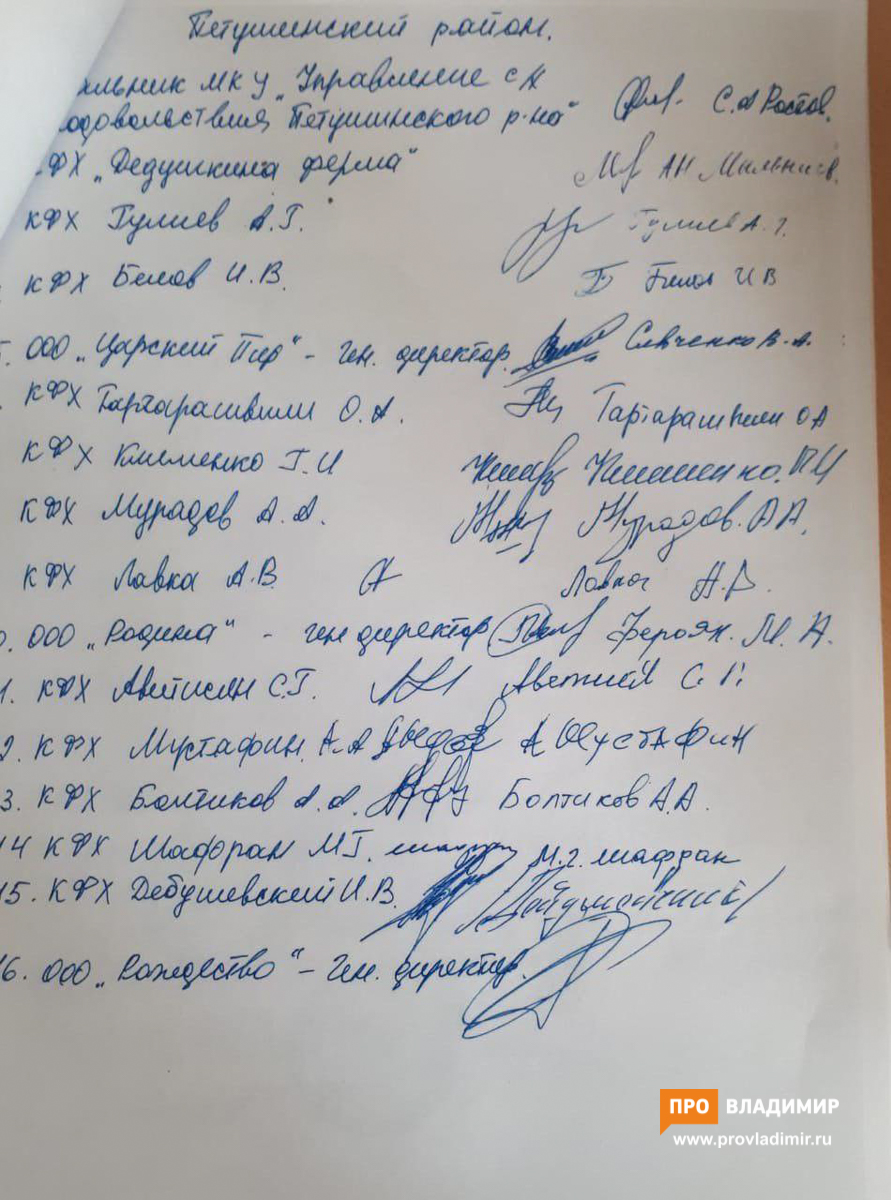 Петушинский район.
альник МКУ „Управление с х
одовольствия Петушинского р-на" С.А Ростов.
КФХ „Дедушкина ферма" АН Мильчиев.
КФХ Гулиев А.Г. Гулиев А. Г.
КФХ Белов И.В. Белов И В
5. ООО „Царский Пир" - Ген. директор. Савченко В. А.
КФХ Тартарашвили О.А. Тартарашвили ОА
КФХ Клименко Г.И Клименко.
КФХ Мурадов А.А. Мурадов. А А.
КФХ Лавка А.В. Лавка А.В.
0. ООО „Родина" - ген директор Фероян. М. А.
1. КФХ Аветисян С.Г. Аветисян С. Г.
2. КФХ Мустафин. А.А А Мустафин
3. КФХ Болтиков А.А. Болтиков А.А.
14 КФХ Шафоран М Г. М.г. шафран
15. КФХ Дебушевский И.В.
16. ООО „Рождество" - Ген. директор.
ПРО ВЛАДИМИР
www.provladimir.ru